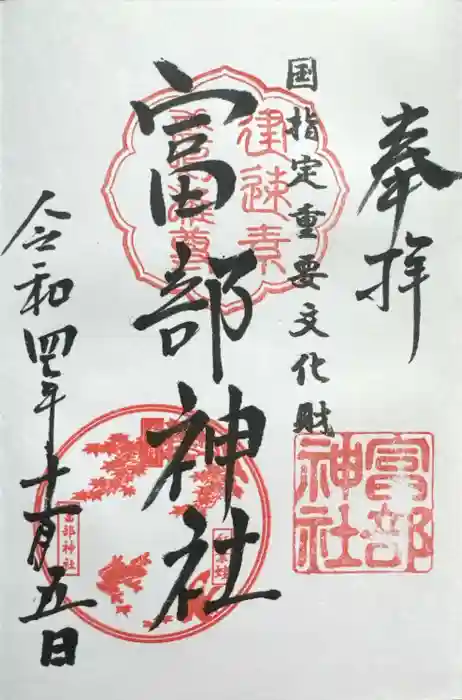 奉拝
国指定重要文化財
建速素
富部神社
富部
神社
富部神社
令和四年十一月五日